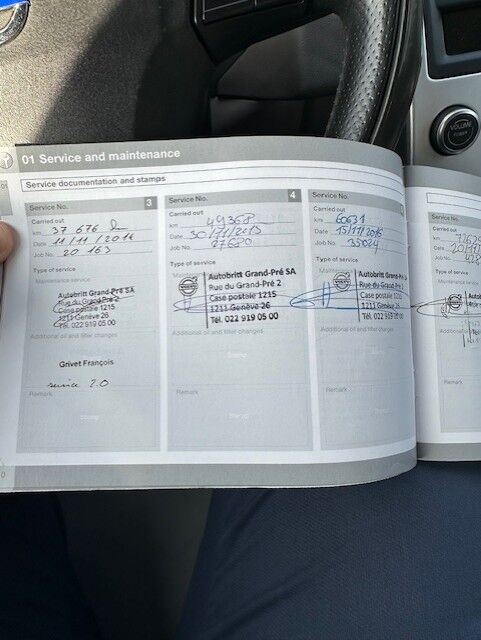 01 Service and maintenance
Service documentation and stamps
Service No. 3
Carried out
km 37 676
Date 11/11/2014
Job No. 20 163
Type of service
Autobritt Grand-Pré SA
Rue du Grand-Pré 2
Case postale 1215
1211 Genève 26
Tél. 022 919 05 00
Additional oil and filter changes
Grivet François
service 2.0
Remark
Stamp
Service No. 4
Carried out
km 49368
Date 30/11/2015
Job No. 27620
Type of service
VOLVO
Autobritt Grand-Pré SA
Rue du Grand-Pré 2
Case postale 1215
1211 Genève 26
Tél. 022 919 05 00
Additional oil and filter changes
Stamp
Remark
Stamp
Service No.
Carried out
km 60631
Date 15/11/2016
Job No. 35024
Type of service
VOLVO
Autobritt Grand-Pré
Rue du Grand-Pré 2
Case postale 1215
1211 Genève 26
Tél. 022 919 05
Additional oil and filter changes
Stamp
Remark
Stamp
Service No.
Carried out
km
Date
Job No.
Type of service
Additional oil
Remark
VOLUME
POWER